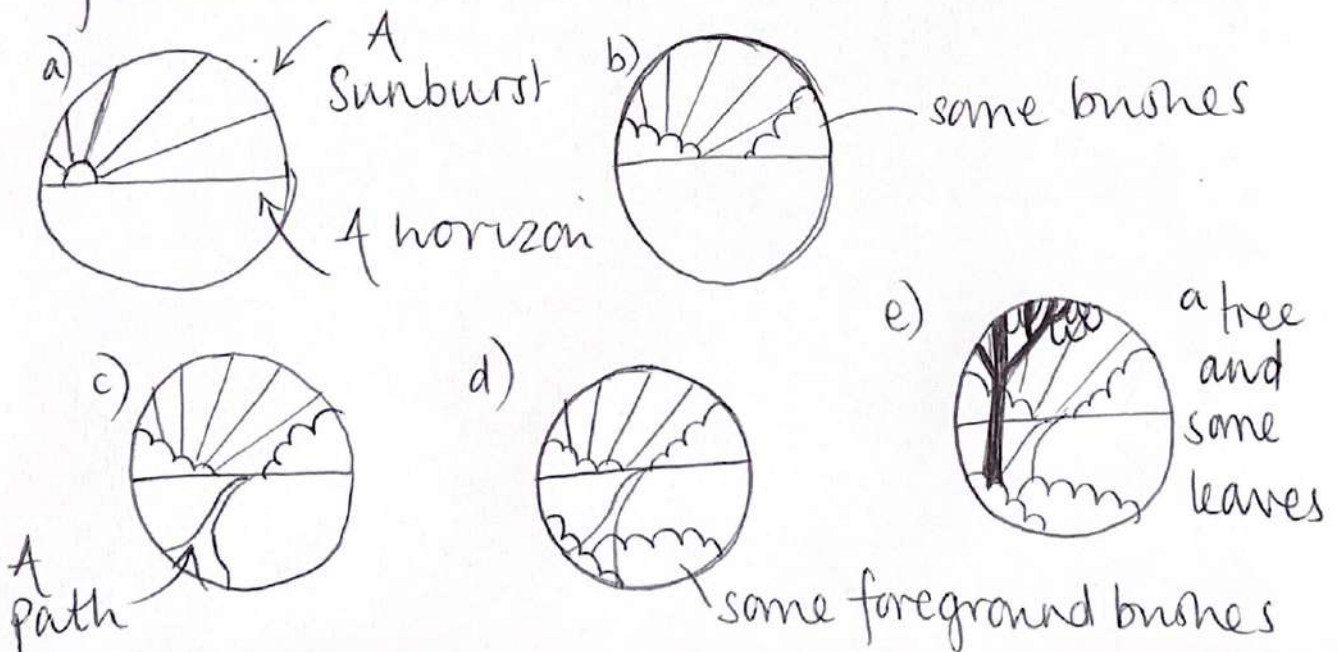 a)
A
Sunburst
A horizon
b)
some bushes
c)
A
path
d)
some foreground bushes
e)
a tree
and
some
leaves